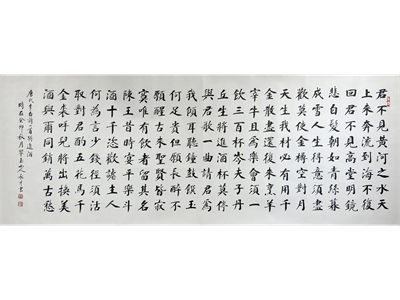 君不見黃河之水天
上來奔流到海不復
回君不見高堂明鏡
悲白髮朝如青絲暮
成雪人生得意須盡
歡莫使金樽空對月
天生我材必有用千
金散盡還復來烹羊
宰牛且為樂會須一
飲三百杯岑夫子丹
丘生將進酒杯莫停
與君歌一曲請君為
我傾耳聽鐘鼓饌玉
何足貴但願長醉不
願醒古來聖賢皆寂
寞唯有飲者留其名
陳王昔時宴平樂斗
酒十千恣歡謔主人
何為言少錢徑須沽
取對君酌五花馬千
金裘呼兒將出換美
酒與爾同銷萬古愁
唐代李白詩一首將進酒
時在癸卯秋月